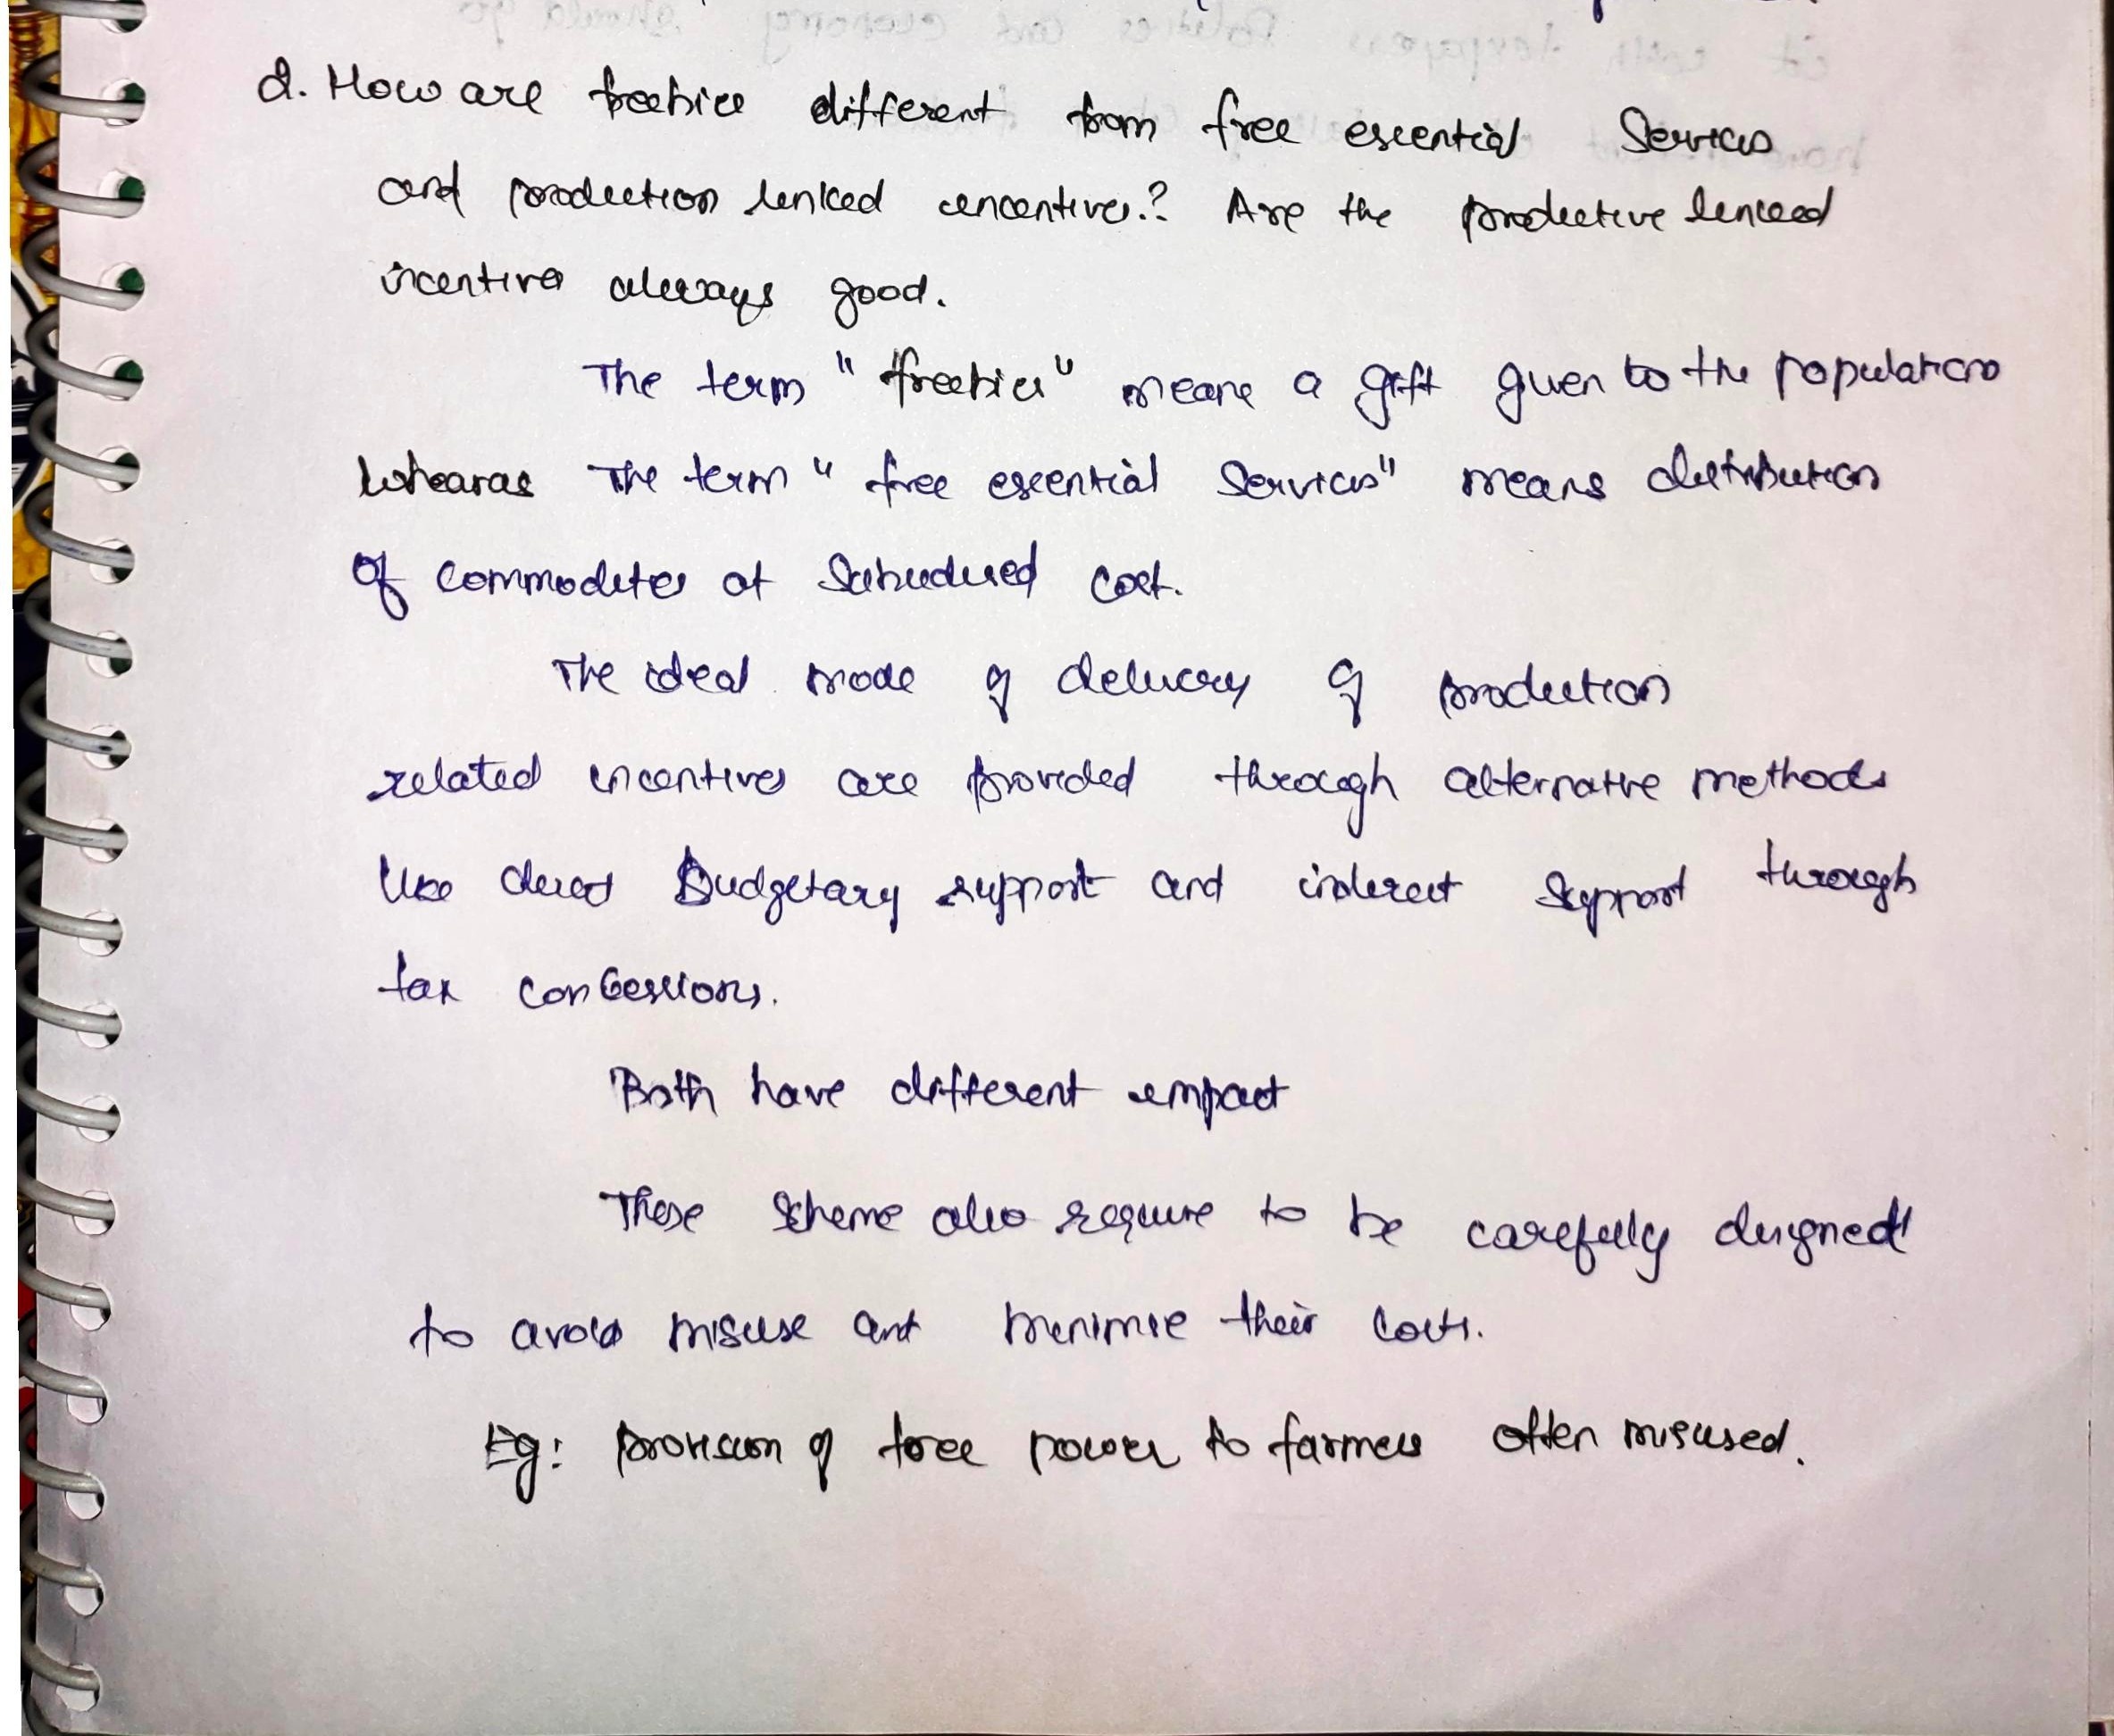 d. How are freebies different from free essential Services
and production linked incentives.? Are the productive linked
incentives always good.
The term "freebies" means a gift given to the population
whearas The term "free essential Services" means distribution
of commodites at Subsidised cost.
The ideal mode of delivery of production
related incentives are provided through alternative methods
like direct Budgetary support and indirect Support through
tax concessions.
Both have different impact
These Scheme also require to be carefully designed
to avoid misuse and minimise their costs.
Eg: provision of free power to farmers often misused.